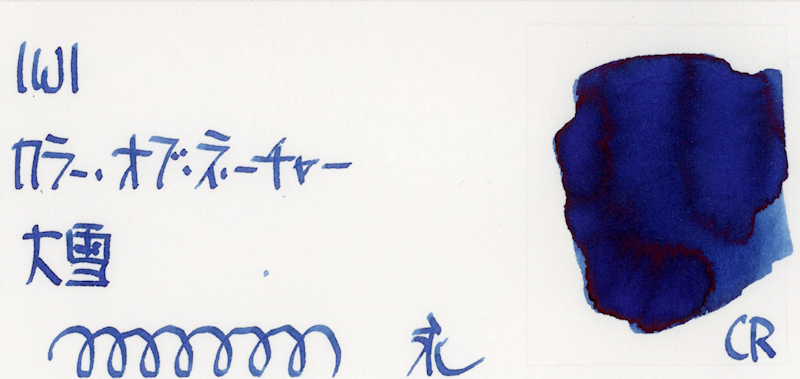 IWI
カラー・オブ・ネーチャー
大雪
永
CR